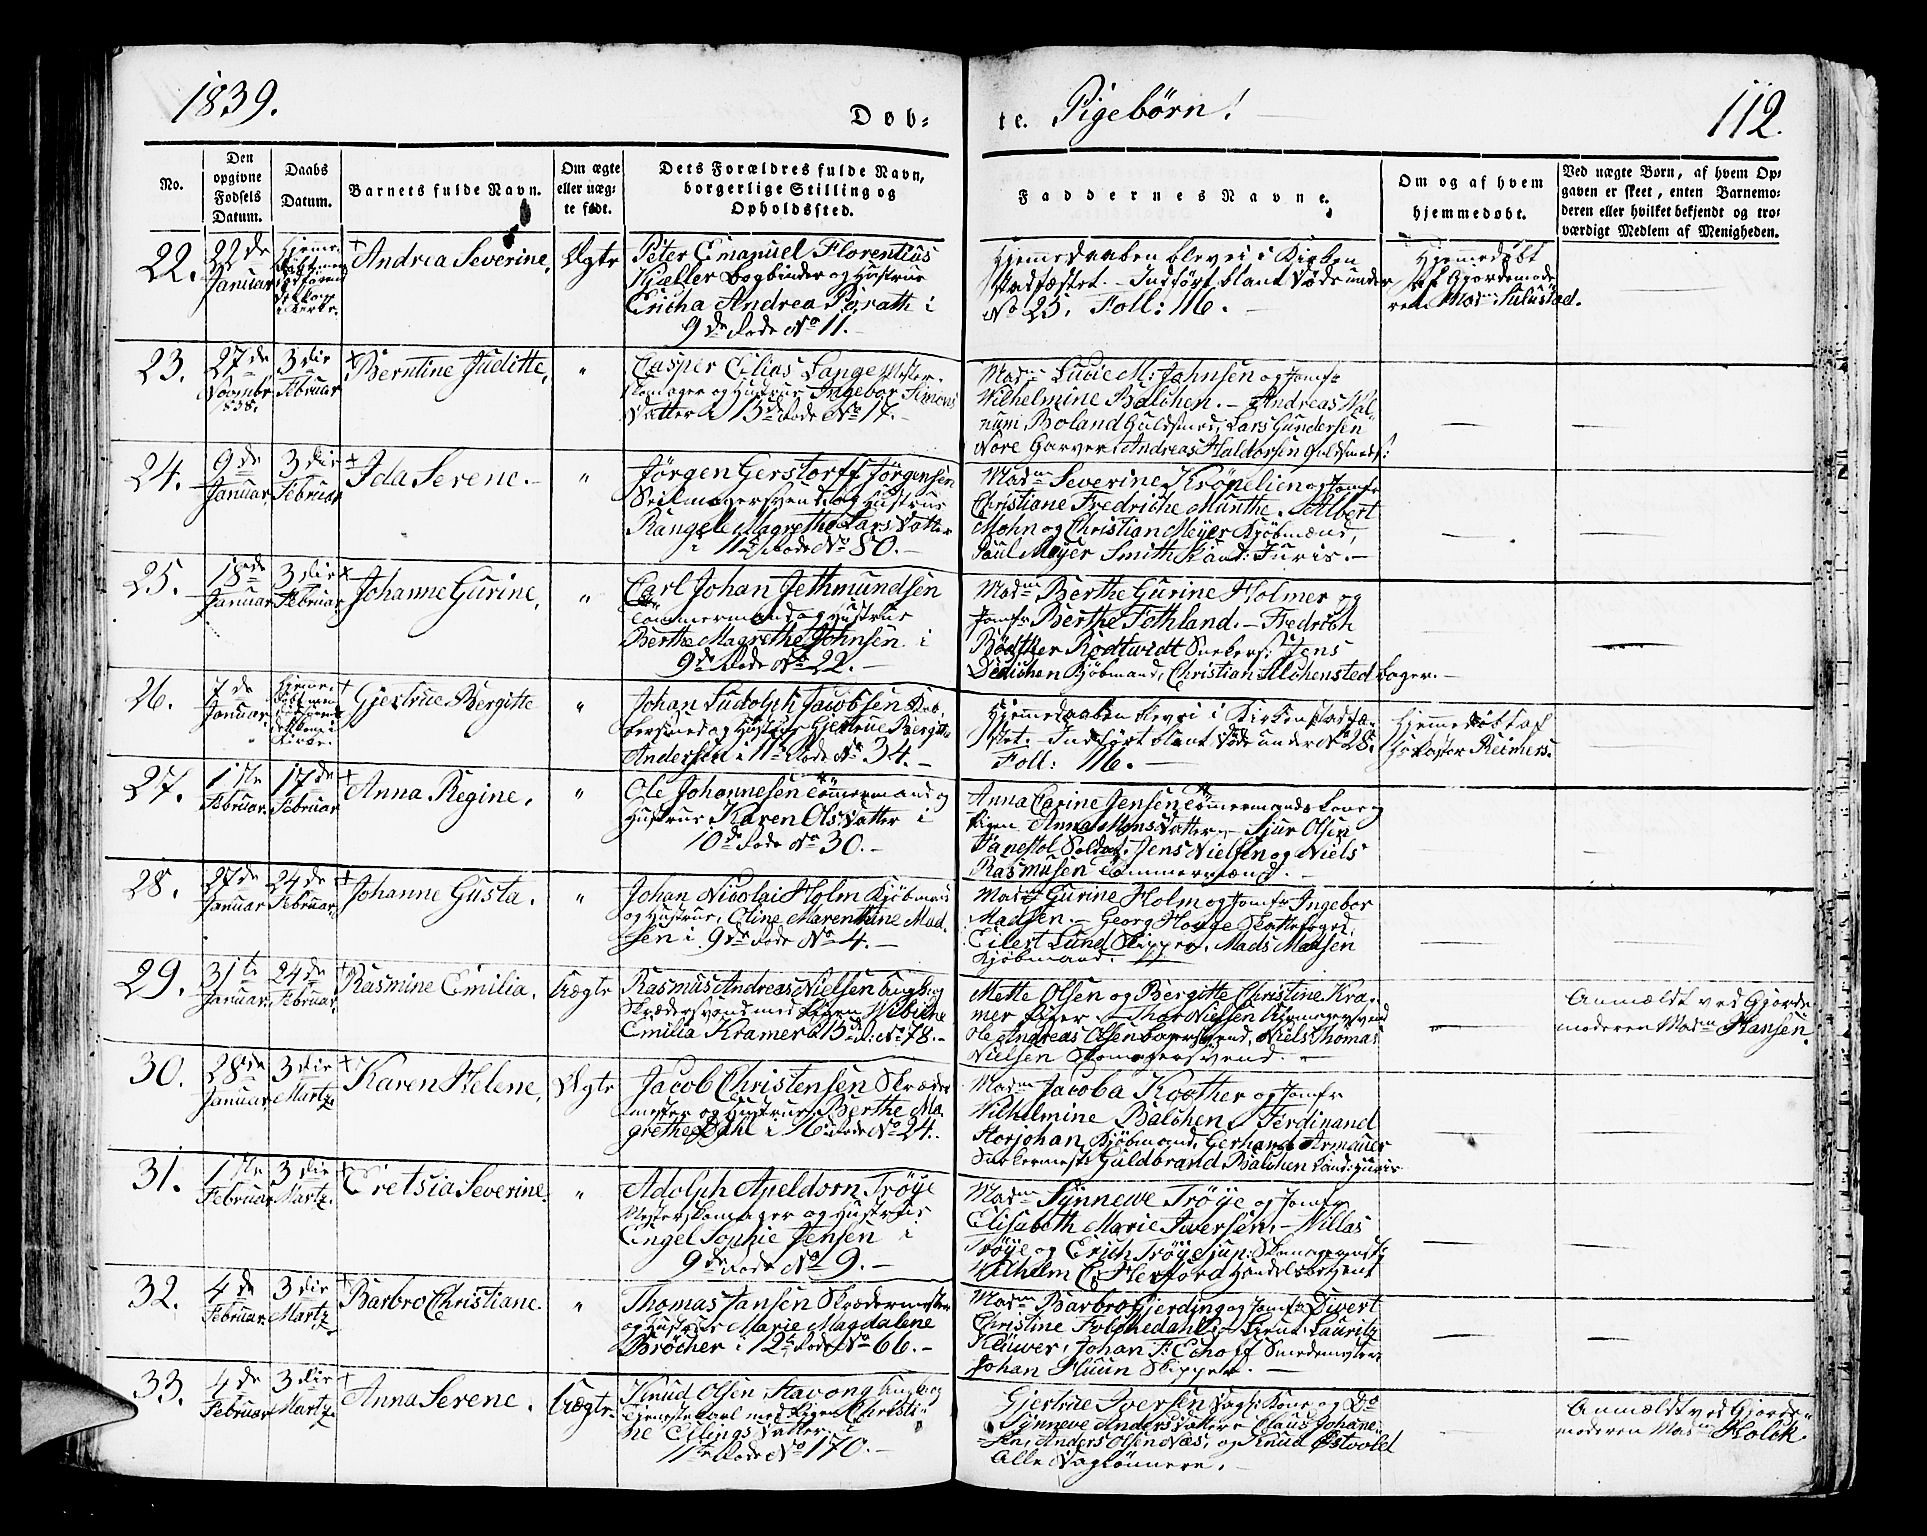 1839.
Døb-
te. Pigebørn!
112.
No.
Den
opgivne
Fødsels
Datum.
Daabs
Datum.
Barnets fulde Navn.
Om ægte
eller uæg-
te født.
Dets Forældres fulde Navn,
borgerlige Stilling og
Opholdssted.
Faddernes Navne.
Om og af hvem
hjemmedøbt.
Ved uægte Børn, af hvem Op-
gaven er skeet, enten Barnemo-
deren eller hvilket bekjendt og tro-
værdigt Medlem af Menigheden.
22.
22de
Januar
Andrea Severine,
Ægte
Peter Emanuel Florentius
Kjøller Bogbinder og Hustrue
Ericha Andrea Porath i
9de Rode No 11.
Hjemedaaben blev ei i Kirken
Stadfæstet. - Indført blant Døde under
No 25. Foll: 116.
Hjemedøbt
af Gjordemode
ren Mad:
23.
27de
Novembr
1838.
3die
Februar
Berntine Juditte,
"
Casper Elias Lange Mester
Skomager og Hustrue Ingebor Simons
Datter i 13de Rode No 14.
Madm Lucie M. Johnsen og Jomfr
Wilhelmine Balchen. - Andreas Wal-
num Boland Guldsmed, Lars Gundersen
Nore Garver, Andreas Haldorsen Guldsmeds:
24.
9de
Januar
3die
Februar
Ida Serene. -
"
Jørgen Gerstorff Jørgensen
Seilmagersvend og Hustrue
Rangele Magrethe Lars Datter
i 11te Rode No 80. -
Madm Severine Krøpelien og Jomfr
Christiane Fredriche Munthe. Albert
Mohn og Christian Meyer Kjøbmænd,
Paul Meyer Smith Kand: Juris. -
25.
18de
Januar
3die
Februar
Johanne Gurine,
"
Carl Johan Jethmundsen
Tømmermand og Hustrue
Berthe Magrethe Johnsen i
9de Rode No 22. -
Madm Berthe Gurine Holmer og
Jomfr Berthe Fothland. - Fredrich
Bødtker Rodtwidt Snekers: Jens
Dedichen Kjøbmand, Christian Michensted Bager. -
26.
7de
Januar
Gjertrue Bergitte
"
Johan Ludolph Jacobsen Kob
bersmed og Hustrue Gjertrue Bergit
Andersen i 11te Rode No 34. -
Hjemmedaaben blev ei i Kirken stadfæ-
stet. - Indført blant Døde under No 28.
Foll: 116. -
Hjemmedøbt af
Reimers.
27.
1ste
Februar
17de
Februar
Anna Regine.
"
Ole Johannesen Tømmermand og
Hustrue Karen Ols Datter i
10de Rode No 30. -
Anna Carine Jensen Tømmermands Kone og
Pigen Anna Mons Datter. - Sjur Olsen
Soldat. Jens Nielsen og Niels
Rasmusen Tømmermænd.
28.
27de
Januar
24de
Februar
Johanne Gusta.
"
Johan Nicolai Holm Kjøbmand
og Hustrue, Oline Marenthine Mad
sen i 9de Rode No 4. -
Madm Gurine Holm og Jomfr Ingebor
Madsen. - Georg Houge
Eilert Lund Skipper, Mads Madsen
Kjøbmand.
29.
31te
Januar
24de
Februar
Rasmine Emilia.
Uægte
Rasmus Andreas Nielsen
Skrædersvend med Pigen Wibiche
Emilia Kramer i 13de R: No 78. -
Mette Olsen og Bergitte Christine Kra-
mer Piger. - Thor Nielsen
Ole Andreas Olsen Bagersvend, Niels Thomas
Nielsen Skomagersvend. -
Anmældt ved Gjorde
moderen Madm Hansen.
30.
28de
Januar
3die
Martz
Karen Helene,
Ægte
Jacob Christensen Skræder
mester og Hustrue Berthe Ma
grethe Dahl i 16de Rode No 24.
Madm Jacoba Koother og Jomfr
Wilhelmine Balchen. Ferdinand
Storjohan Kjøbmand, Gerhard Armauer
Snekermest: Guldbrand Balchen Cand: Juris
31.
1ste
Februar
3die
Martz.
Eretsia Severine.
"
Adolph Apeldorn Trøye
Mester Skomager og Hustrue
Engel Sophie Jensen i
9de Rode No 9. -
Madm Synnewe Trøye og Jomfr
Elisabeth Marie Iversen. - Willas
Trøye og Erich Trøye jun: Skomagermest:
Wilhelm E. Herford Handelsbetjent
32.
4de
Februar
3die
Martz
Barbro Christiane.
"
Thomas Jansen Skrædermester
og Hustrue Marie Magdalene
Brøcher i 12te Rode No 66. -
Madm Barbro Gjerding og Jomfr Divert
Christine Folchedahl. - Lieut: Lauritz
Klüwer, Johan F: Echoff Smedemester
Johan Fluun Skipper. -
33.
4de
Februar
3die
Martz.
Anna Serene.
Uægte.
Knud Olsen Stavong
Tjenestekarl med Pigen Christi-
ne Ellings Datter i
11te Rode No 170. -
Gjertrue Iversen Dags: Kone og Do
Synneve Anders Datter Claus Johane-
sen, Anders Olsen Næs, og Knud Østvold
Alle Daglønnere.
Anmældt ved Gjorde-
moderen Madm Holck.